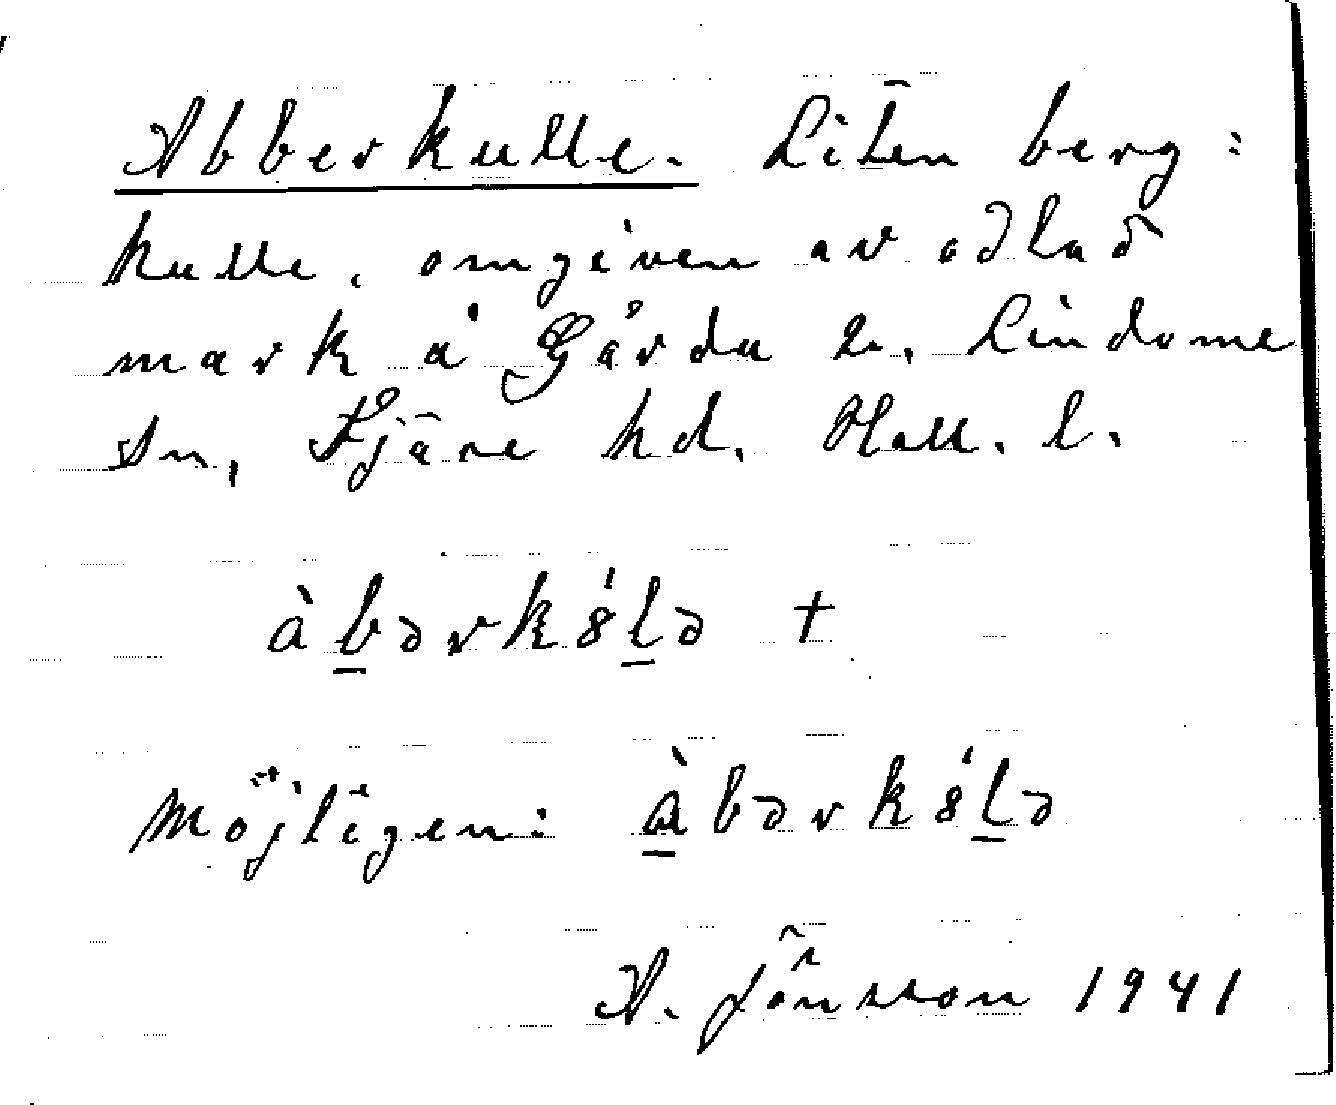 Abberkulle. Liten berg:
kulle, omgiven av odlad
mark å Gårda 2, Lindome
sn, Fjäre hd. Hall. l.
àb̲ərkȣ́l̲ə +
Möjligen: à̲bərkȣ́l̲ə
A. Jönsson 1941